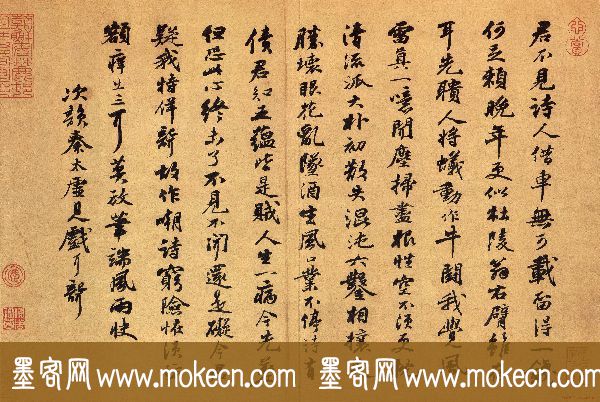 君不見詩人借車無可載留得一錢
何足賴晚年更似杜陵翁右臂雖
耳先聵人將蟻動作牛鬥我覺風
雷真一噫聞塵掃盡根性空不須更
清流派大朴初散失混沌六鑿相攘
勝壞眼花亂墜酒生風口業不停詩有
債君知五蘊皆是賊人生一病今先差
但恐此心終未了不見不聞還是礙今
疑我特佯聾故作嘲詩窮險怪須
額癢出三耳莫放筆端風雨快
次韻秦太虛見戲耳聾
墨客网 www.mokecn.com 墨客网 www.mokecn.com